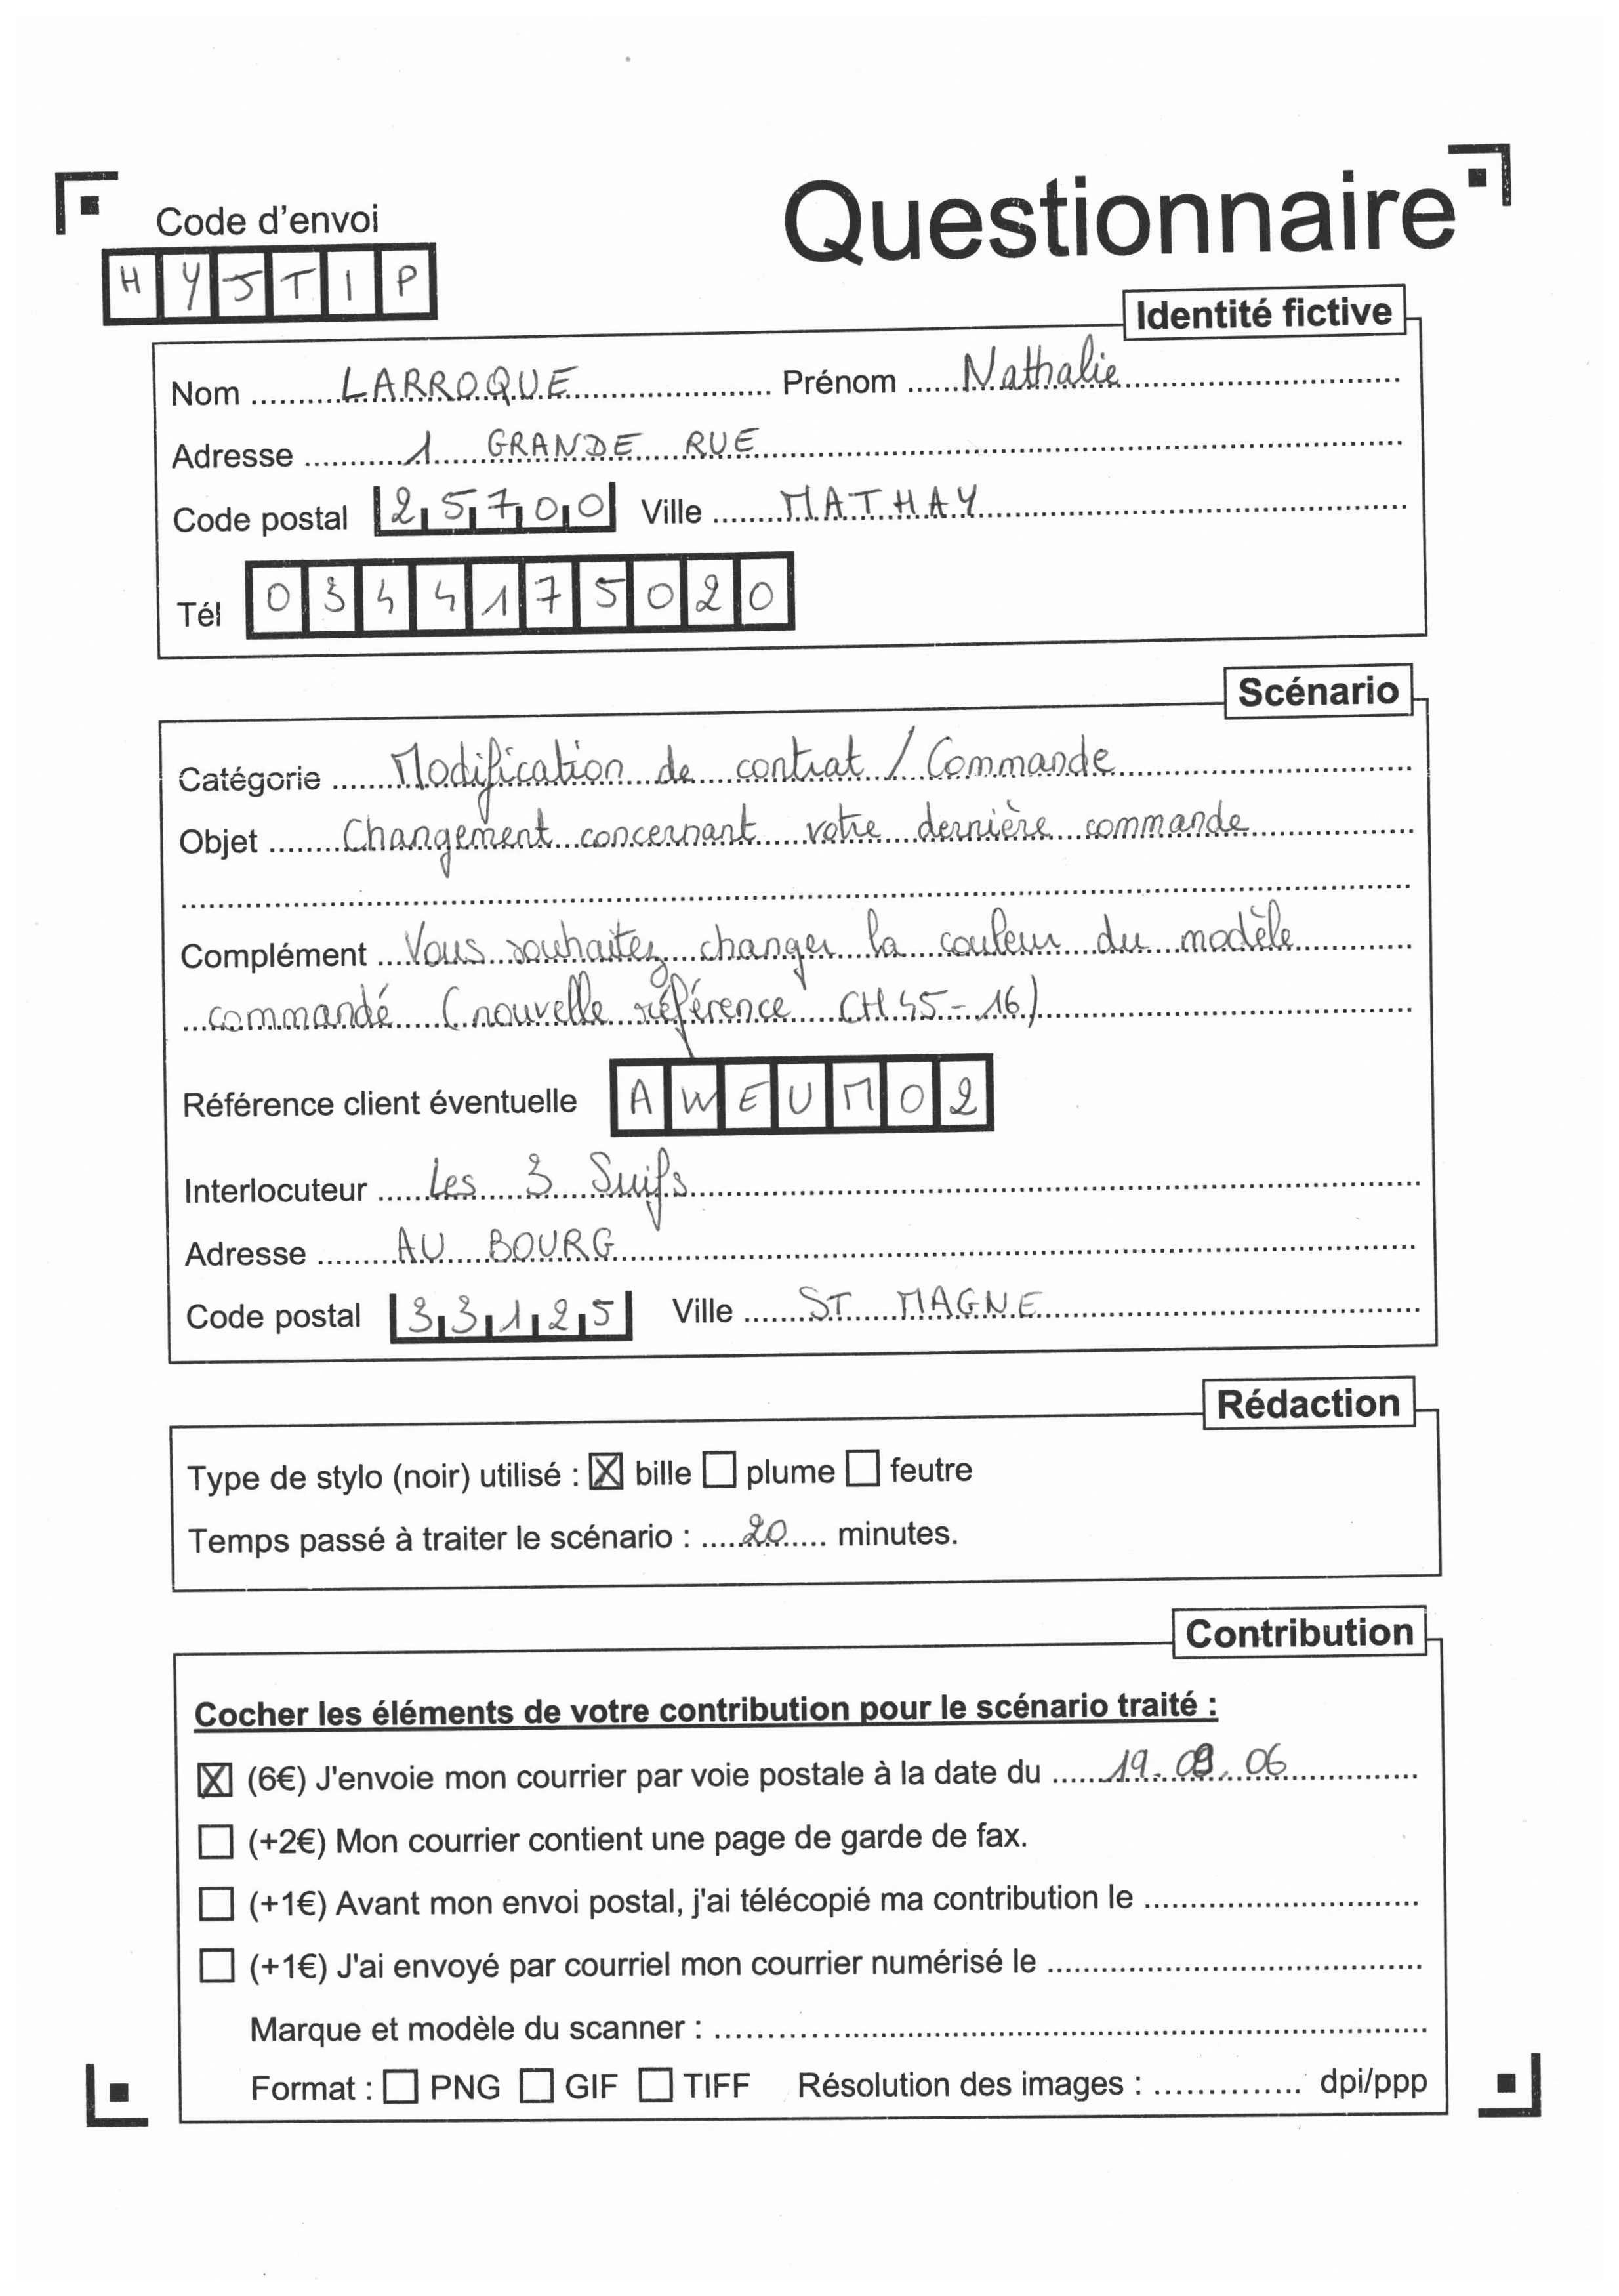 Questionnaire
Code d'envoi
HYJTIP
Identité fictive
Nom LARROQUE Prénom Nathalie
Adresse 1 GRANDE RUE
Code postal 25700 Ville MATHAY
Tél 0344175020
Scénario
Catégorie Modification de contrat / Commande
Objet Changement concernant votre dernière commande
Complément Vous souhaitez changer la couleur du modèle
commandé (nouvelle référence CH45-16)
Référence client éventuelle AWEUM02
Interlocuteur Les 3 Suifs
Adresse AU BOURG
Code postal 33125 Ville ST MAGNE
Rédaction
Type de stylo (noir) utilisé : ☒ bille ☐ plume ☐ feutre
Temps passé à traiter le scénario : 20 minutes.
Contribution
Cocher les éléments de votre contribution pour le scénario traité :
☒ (6€) J'envoie mon courrier par voie postale à la date du 19.09.06
☐ (+2€) Mon courrier contient une page de garde de fax.
☐ (+1€) Avant mon envoi postal, j'ai télécopié ma contribution le
☐ (+1€) J'ai envoyé par courriel mon courrier numérisé le
Marque et modèle du scanner :
Format : ☐ PNG ☐ GIF ☐ TIFF Résolution des images : dpi/ppp